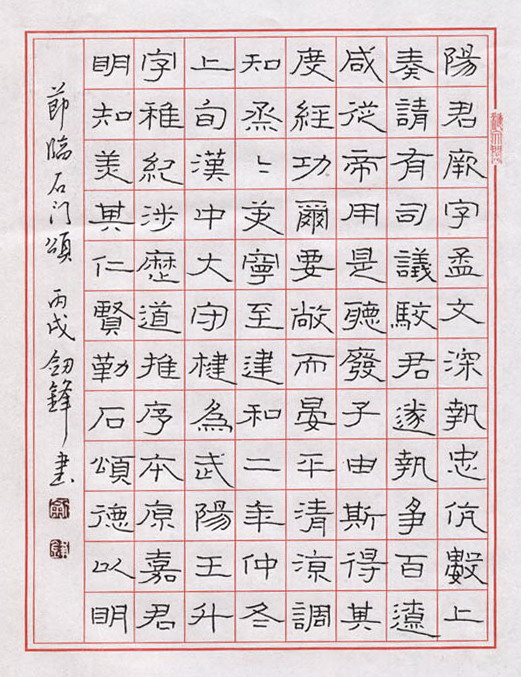 陽君厥字孟文深執忠伉數上
奏請有司議駮君遂執爭百遼
咸從帝用是聽廢子由斯得其
度經功爾要敞而晏平清涼調
和烝〻艾寧至建和二年仲冬
上旬漢中大守楗為武陽王升
字稚紀涉歷道推序本原嘉君
明知美其仁賢勒石頌德以明
節臨石门頌 丙戌 釰鋒書